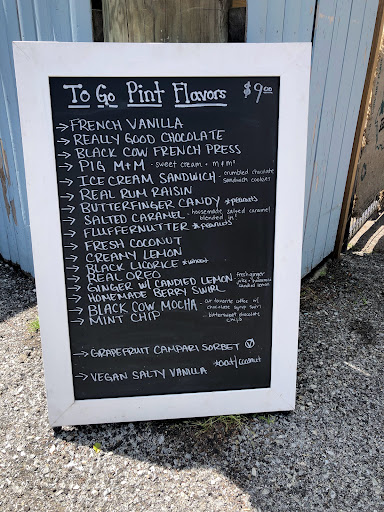 To Go Pint Flavors $9.00
→ FRENCH VANILLA
→ REALLY GOOD CHOCOLATE
→ BLACK COW FRENCH PRESS
→ PIG M+M - sweet cream + m+m's
→ ICE CREAM SANDWICH - crumbled chocolate
sandwich cookies
→ REAL RUM RAISIN
→ BUTTERFINGER CANDY *peanuts
→ SALTED CARAMEL - housemade salted caramel
blended in
→ FLUFFERNUTTER *peanuts
→ FRESH COCONUT
→ CREAMY LEMON
→ BLACK LICORICE *wheat
→ REAL OREO
→ GINGER W/ CANDIED LEMON - fresh ginger
juice + housemade
candied lemon
→ HOMEMADE BERRY SWIRL
→ BLACK COW MOCHA - our favorite coffee w/
chocolate syrup swirl
→ MINT CHIP - bittersweet chocolate
chips
→ GRAPEFRUIT CAMPARI SORBET Ⓥ
→ VEGAN SALTY VANILLA *oat/coconut